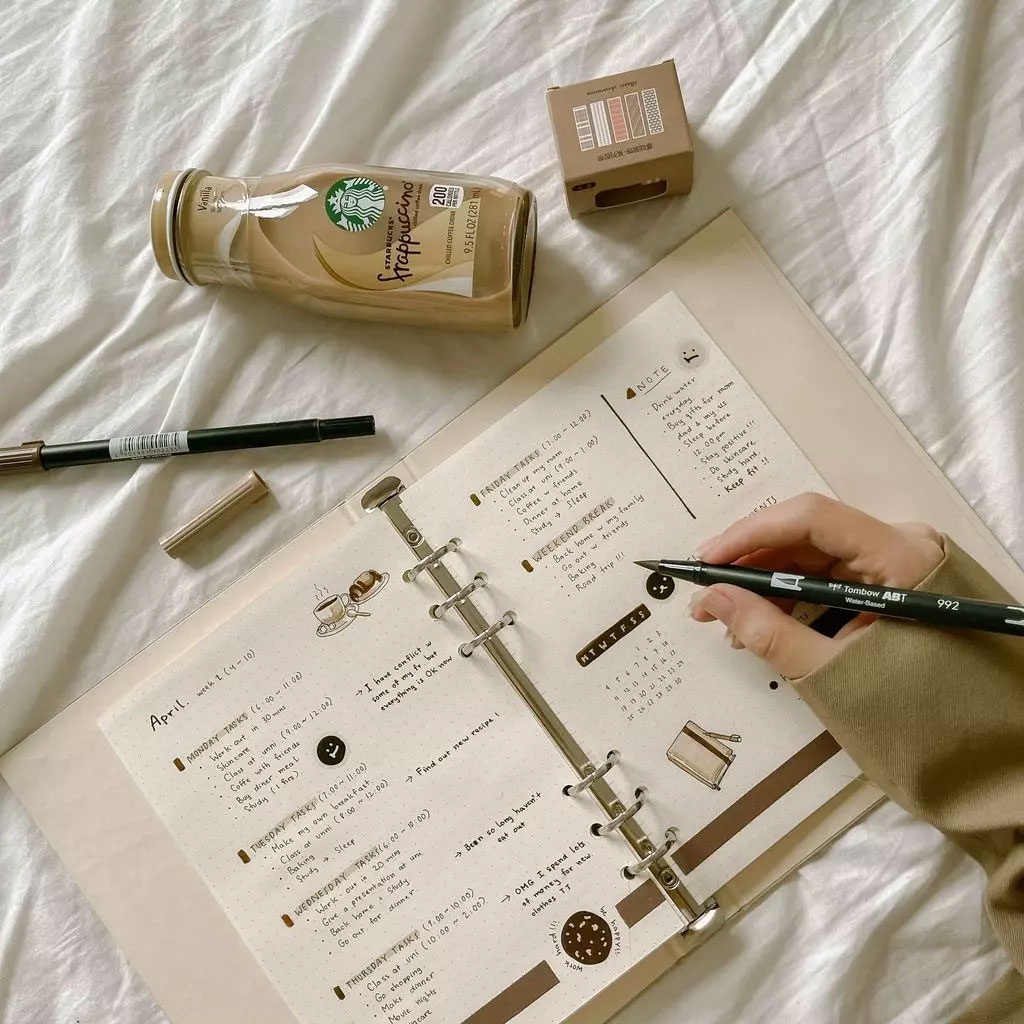 Vanilla
STARBUCKS
frappuccino
CHILLED COFFEE DRINK
200
CALORIES
PER BOTTLE
9.5 FL OZ (281 mL)
April. week 2 (4-10)
MONDAY TASKS (6:00 - 11:00)
Work out in 30 mins
Skincare
Class at unni (9:00 - 12:00)
Coffe with friends
Buy diner meal
Study (1 hrs)
→ I have conflict w
some of my fr. but
everything is OK now
TUESDAY TASKS (7:00 - 11:00)
Make my own breakfast
Class at unni (8:00 - 12:00)
Baking
Study → Sleep
→ Find out new recipe!
WEDNESDAY TASKS (6:00 - 10:00)
Work out in 20 mins
Give a presentation at uni
Back home + Study
Go out for dinner
→ Been so long haven't
eat out
THURSDAY TASKS (9:00 - 10:00)
Class at uni (10:00 ~ 2:00)
Go shopping
Make dinner
Movie nights
→ OMG I spend lots
of money for new
clothes TT
work hard!!
FRIDAY TASKS (7:00 - 12:00)
Clean up my room
Class at uni (9:00 - 1:00)
Coffee w friends
Dinner at home
Study → Sleep
WEEKEND BREAK
Back home w my family
Go out w friends
Baking
Road trip!!!
NOTE
Drink water
everyday
Buy gifts for mom
dad & my sis
Sleep before
12:00 pm
Stay positive!!!
Do skincare
Study hard
Keep fit!!
M T W T F S S
1 2 3
4 5 6 7 8 9 10
11 12 13 14 15 16 17
18 19 20 21 22 23 24
25 26 27 28 29 30
Tombow ABT
Water-Based
992